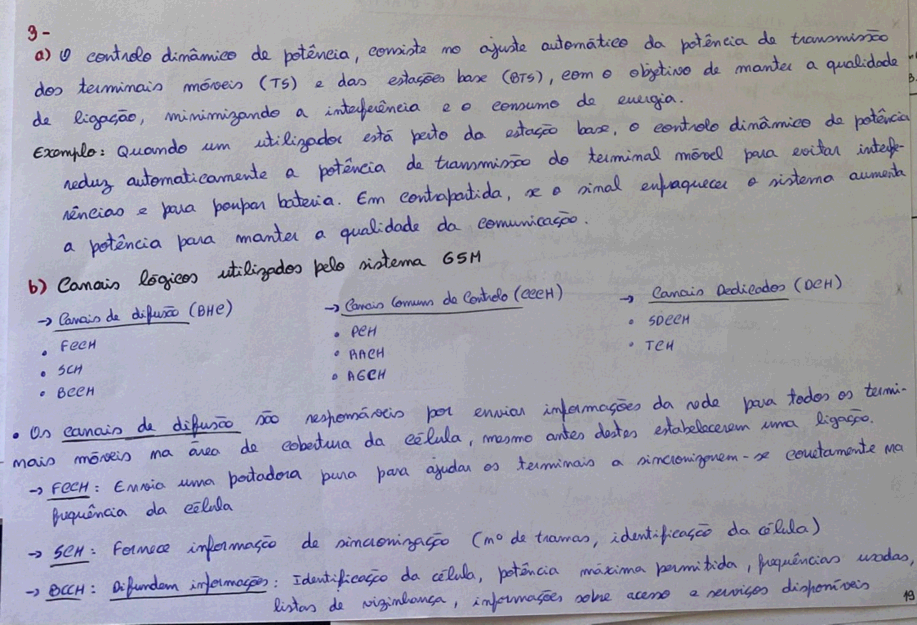 3-
a) O controlo dinâmico de potência, consiste no ajuste automático da potência de transmissão
dos terminais móveis (TS) e das estações base (BTS), com o objetivo de manter a qualidade
de ligação, minimizando a interferência e o consumo de energia.
Exemplo: Quando um utilizador está perto da estação base, o controlo dinâmico de potência
reduz automaticamente a potência de transmissão do terminal móvel para evitar interfe-
rências e para poupar bateria. Em contrapartida, se o sinal enfraquecer o sistema aumenta
a potência para manter a qualidade da comunicação.
b) Canais lógicos utilizados pelo sistema GSM
→ Canais de difusão (BHC)
• FCCH
• SCH
• BCCH
→ Canais Comuns de Controlo (CCCH)
• PCH
• RACH
• AGCH
→ Canais Dedicados (DCH)
• SDCCH
• TCH
• Os canais de difusão são responsáveis por enviar informações da rede para todos os termi-
nais móveis na área de cobertura da célula, mesmo antes destes estabelecerem uma ligação.
→ FCCH: Envia uma portadora pura para ajudar os terminais a sincronizarem-se corretamente na
frequência da célula
→ SCH: Fornece informação de sincronização (nº de tramas, identificação da célula)
→ BCCH: Difundem informações: Identificação da célula, potência máxima permitida, frequências usadas,
listas de vizinhança, informações sobre acesso a serviços disponíveis
19